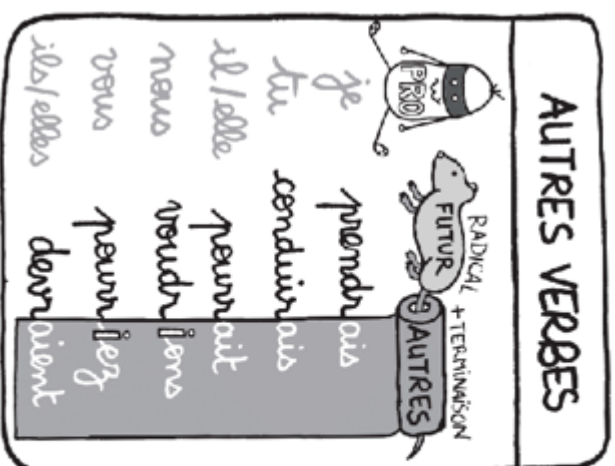 AUTRES VERBES
RADICAL + TERMINAISON
PRO FUTUR AUTRES
je prendrais
tu conduirais
il/elle pourrait
nous voudrions
vous pourriez
ils/elles devraient